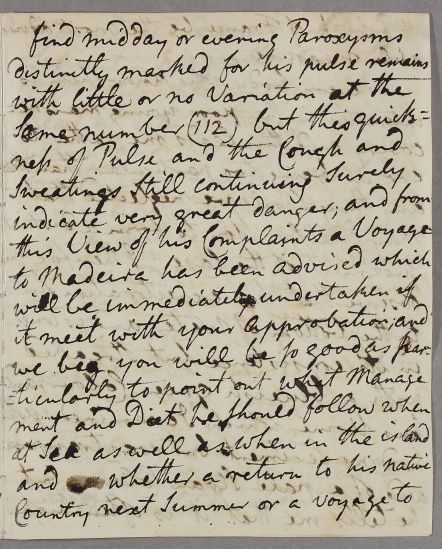 find midday or evening Paroxysms
distinctly marked for his pulse remains
with little or no Variation at the
same number (112) but the quick=
ness of Pulse and the Cough and
Sweatings still continuing Surely
indicate very great danger, and from
this View of his Complaints a Voyage
to Madeira has been advised which
will be immediately undertaken if
it meet with your approbation; and
we beg you will be so good as par=
=ticularly to point out what Manage
ment and Diet he should follow when
at Sea as well as when in the island
and whether a return to his native
Country next Summer or a voyage to